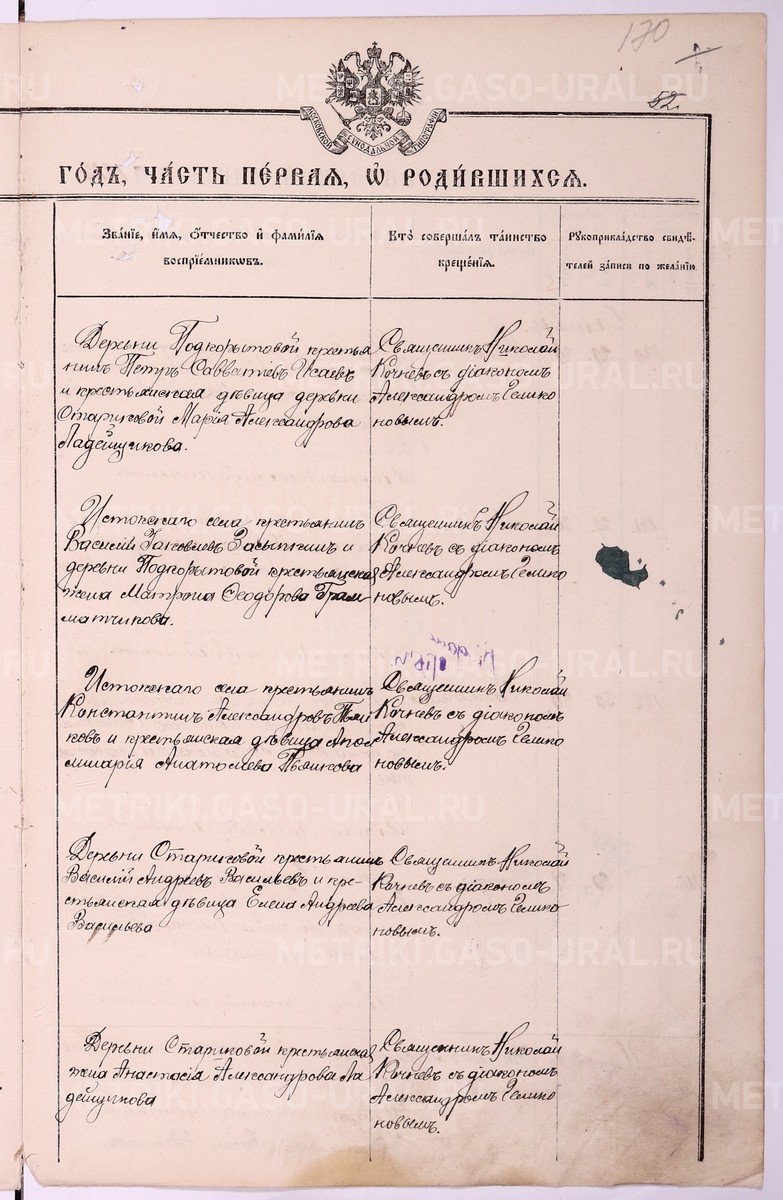 170
82.
МОСКОВСКОЙ СѴНОДАЛЬНОЙ ТИПОГРАФІИ
ГО́ДЪ, ЧА́СТЬ ПЕ́РВАЯ, Ѡ҆ РОДИ́ВШИХСЯ.
Зва́нїе, и҆́мя, ѻ҆́тчество и҆ фами́лїя
воспрїе́мникѡвъ.
Кто̀ соверша́лъ та́инство
креще́нїя.
Рꙋкоприкла́дство свидѣ́-
телей за́писи по жела́нїю
Деревни Подкорытовой крестья
нинъ Петръ Савватіевъ Исаевъ
и крестьянская дѣвица деревни
Стариковой Марія Александрова
Ладейщикова.
Священникъ Николай
Кочневъ съ діакономъ
Александромъ Челно
новымъ.
Истокскаго села крестьянинъ
Василій Іаковлевъ Засыпкинъ и
деревни Подкорытовой крестьянская
жена Матрона Ѳеодорова Грам-
матчикова.
Священникъ Николай
Кочневъ съ діакономъ
Александромъ
новымъ.
Истокскаго села крестьянинъ
Константинъ Александровъ Пьян
ковъ и крестьянская дѣвица Апол
линарія Анатолиева Пьянкова
Священникъ Николай
Кочневъ съ діакономъ
Александромъ
новымъ.
Деревни Стариковой крестьянинъ
Василій Андреевъ Васильевъ и кре-
стьянская дѣвица Елена Андреева
Васильева
Священникъ Николай
Кочневъ съ діакономъ
Александромъ
новымъ.
Деревни Стариковой крестьянская
жена Анастасія Александрова Ла
дейщикова
Священникъ Николай
Кочневъ съ діакономъ
Александромъ
новымъ.
METRIKI.GASO-URAL.RU